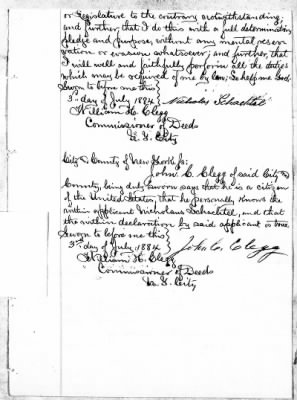 or Legislature to the contrary notwithstanding;
and further, that I do this with a full determination,
pledge and purpose, without any mental reser-
vation or evasion whatsoever; and further, that
I will well and faithfully perform all the duties
which may be required of me by law; So help me God.
Sworn to before me this
3d day of July 1884 } Nicholas Schachtel
William H. Clegg
Commissioner of Deeds
N.Y. City
City & County of New York, ss:
John C. Clegg of said City &
County, being duly sworn says that he is a citizen
of the United States, that he personally knows the
within applicant Nicholaus Schachtel, and that
the within declaration by said applicant is true.
Sworn to before me this
3d day of July 1884 } John C. Clegg
William H. Clegg
Commissioner of Deeds
N.Y. City